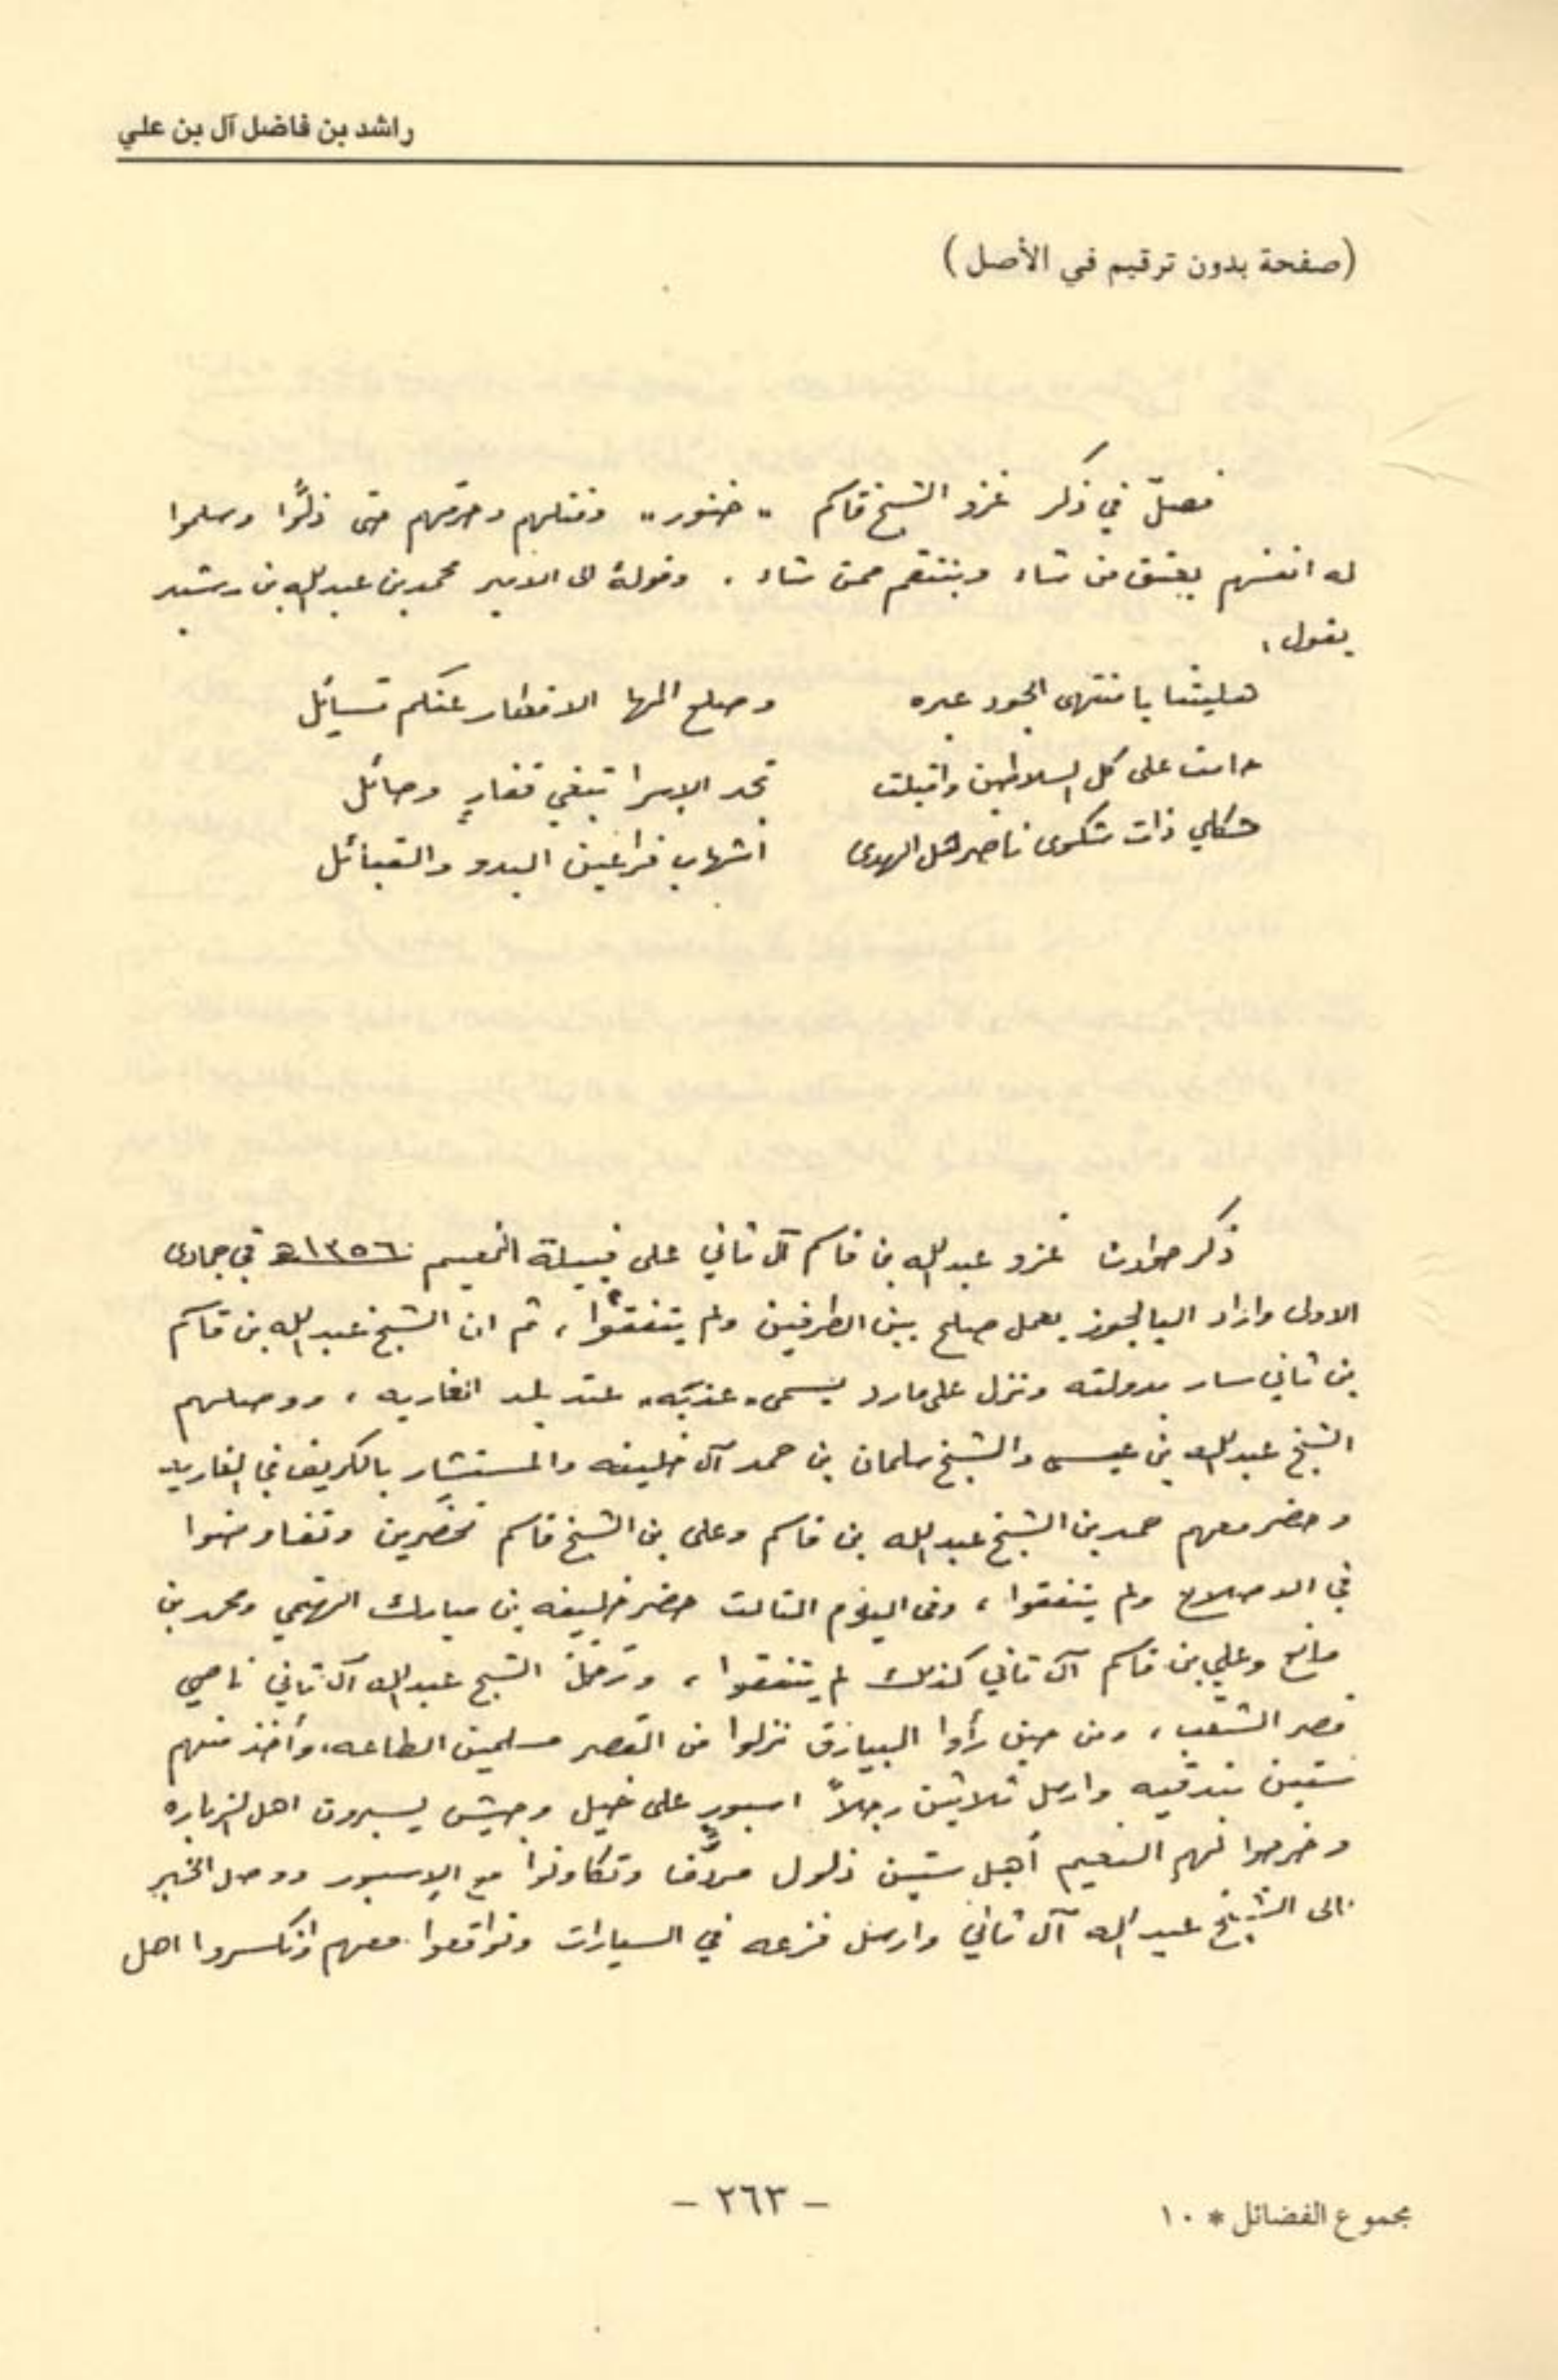 راشد بن فاضل آل بن علي
(صفحة بدون ترقيم في الأصل)
فصلٌ في ذكر غزو الشيخ قاسم "خنور" وقتلهم وحرقهم حتى ذلّوا وسلموا
له انفسهم يعتق من شاء وينتقم ممن شاء . وقولهُ الى الامير محمد بن عبدالله بن رشيد
يقول :
يا منتهى الجود عبره
الاقطار عنكم تسائل
على كل السلاطين واقبلت
تبغي قفارٍ وحائل
ذات شكوى ناصر هل الهدى
فراعين البدو والقبائل
ذكر حوادث غزو عبدالله بن قاسم آل ثاني على قبيلة النعيم ١٣٥٦هـ في جمادى
الاولى واراد اليا لجوز يعمل صلح بين الطرفين ولم يتفقوا ، ثم ان الشيخ عبدالله بن قاسم
بن ثاني سار بدولته ونزل على مارد يسمى "عذبه" عند بلد الغاريه ، ووصلهم
الشيخ عبدالله بن عيسى والشيخ سلمان بن حمد آل خليفه والمستشار بالكريف في الغاريه
وحضر معهم حمد بن الشيخ عبدالله بن قاسم وعلى بن الشيخ قاسم وتفاوضوا
في الاصلاح ولم يتفقوا ، وفى اليوم الثالث حضر خليفه بن مبارك ومحمد بن
مانع وعلي بن قاسم آل ثاني كذلك لم يتفقوا ، الشيخ عبدالله آل ثاني ناصي
قصر الشقب ، ومن حين رأوا البيازق نزلوا من القصر مسلمين الطاعه ، وأخذ منهم
ستين بندقيه وارسل ثلاثين رجلاً اسبور على خيل وجيش يسبرون اهل الزباره
وخرجوا لهم النعيم أهل ستين ذلول مردّف وتكاونوا مع الاسبور ووصل الخبر
الى الشيخ عبدالله آل ثاني وارسل فزعه في السيارات وتواقعوا معهم وانكسروا اهل
مجموع الفضائل * ١٠
– ٢٦٣ –